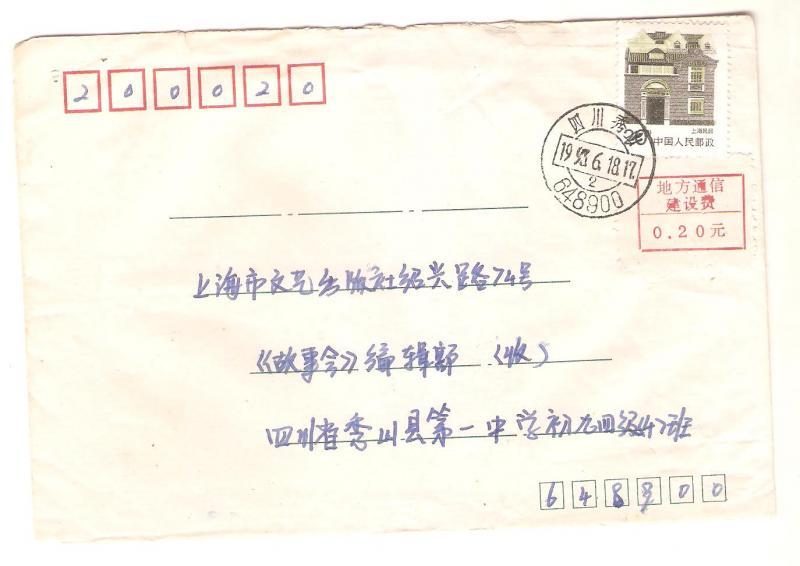 200020
上海民居
中国人民邮政
四川秀山
1993.6.18.17.
2
648900
地方通信
建设费
0.20元
上海市文艺出版社绍兴路74号
《故事会》编辑部（收）
四川省秀山县第一中学初九四级47班
648900